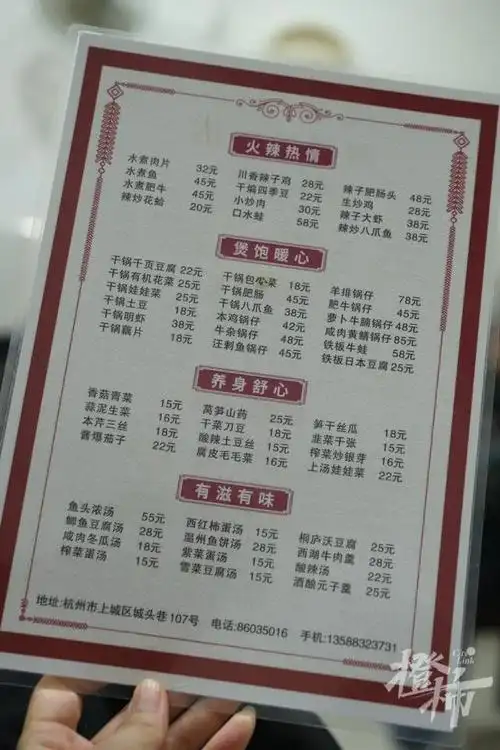 火辣热情
水煮肉片 32元 川香辣子鸡 28元 辣子肥肠头 48元
水煮鱼 45元 干煸四季豆 22元 生炒鸡 28元
水煮肥牛 45元 小炒肉 30元 辣子大虾 38元
辣炒花蛤 20元 口水蛙 58元 辣炒八爪鱼 38元
煲饱暖心
干锅千页豆腐 22元 干锅包心菜 18元 羊排锅仔 78元
干锅有机花菜 25元 干锅肥肠 45元 肥牛锅仔 45元
干锅娃娃菜 25元 干锅八爪鱼 38元 萝卜牛腩锅仔 48元
干锅土豆 18元 本鸡锅仔 42元 咸肉黄鳝锅仔 85元
干锅明虾 38元 牛杂锅仔 48元 铁板牛蛙 58元
干锅藕片 18元 汪刺鱼锅仔 45元 铁板日本豆腐 25元
养身舒心
香菇青菜 15元 莴笋山药 25元 笋干丝瓜 18元
蒜泥生菜 16元 干菜刀豆 18元 韭菜干张 15元
本芹三丝 18元 酸辣土豆丝 15元 榨菜炒银芽 16元
酱爆茄子 22元 腐皮毛毛菜 16元 上汤娃娃菜 22元
有滋有味
鱼头浓汤 55元 西红柿蛋汤 15元 桐庐沃豆腐 25元
鲫鱼豆腐汤 28元 温州鱼饼汤 28元 西湖牛肉羹 28元
咸肉冬瓜汤 18元 紫菜蛋汤 15元 酸辣汤 22元
榨菜蛋汤 15元 雪菜豆腐汤 15元 酒酿元子羹 25元
地址:杭州市上城区城头巷107号 电话:86035016 手机:13588323731
橙柿
City Link